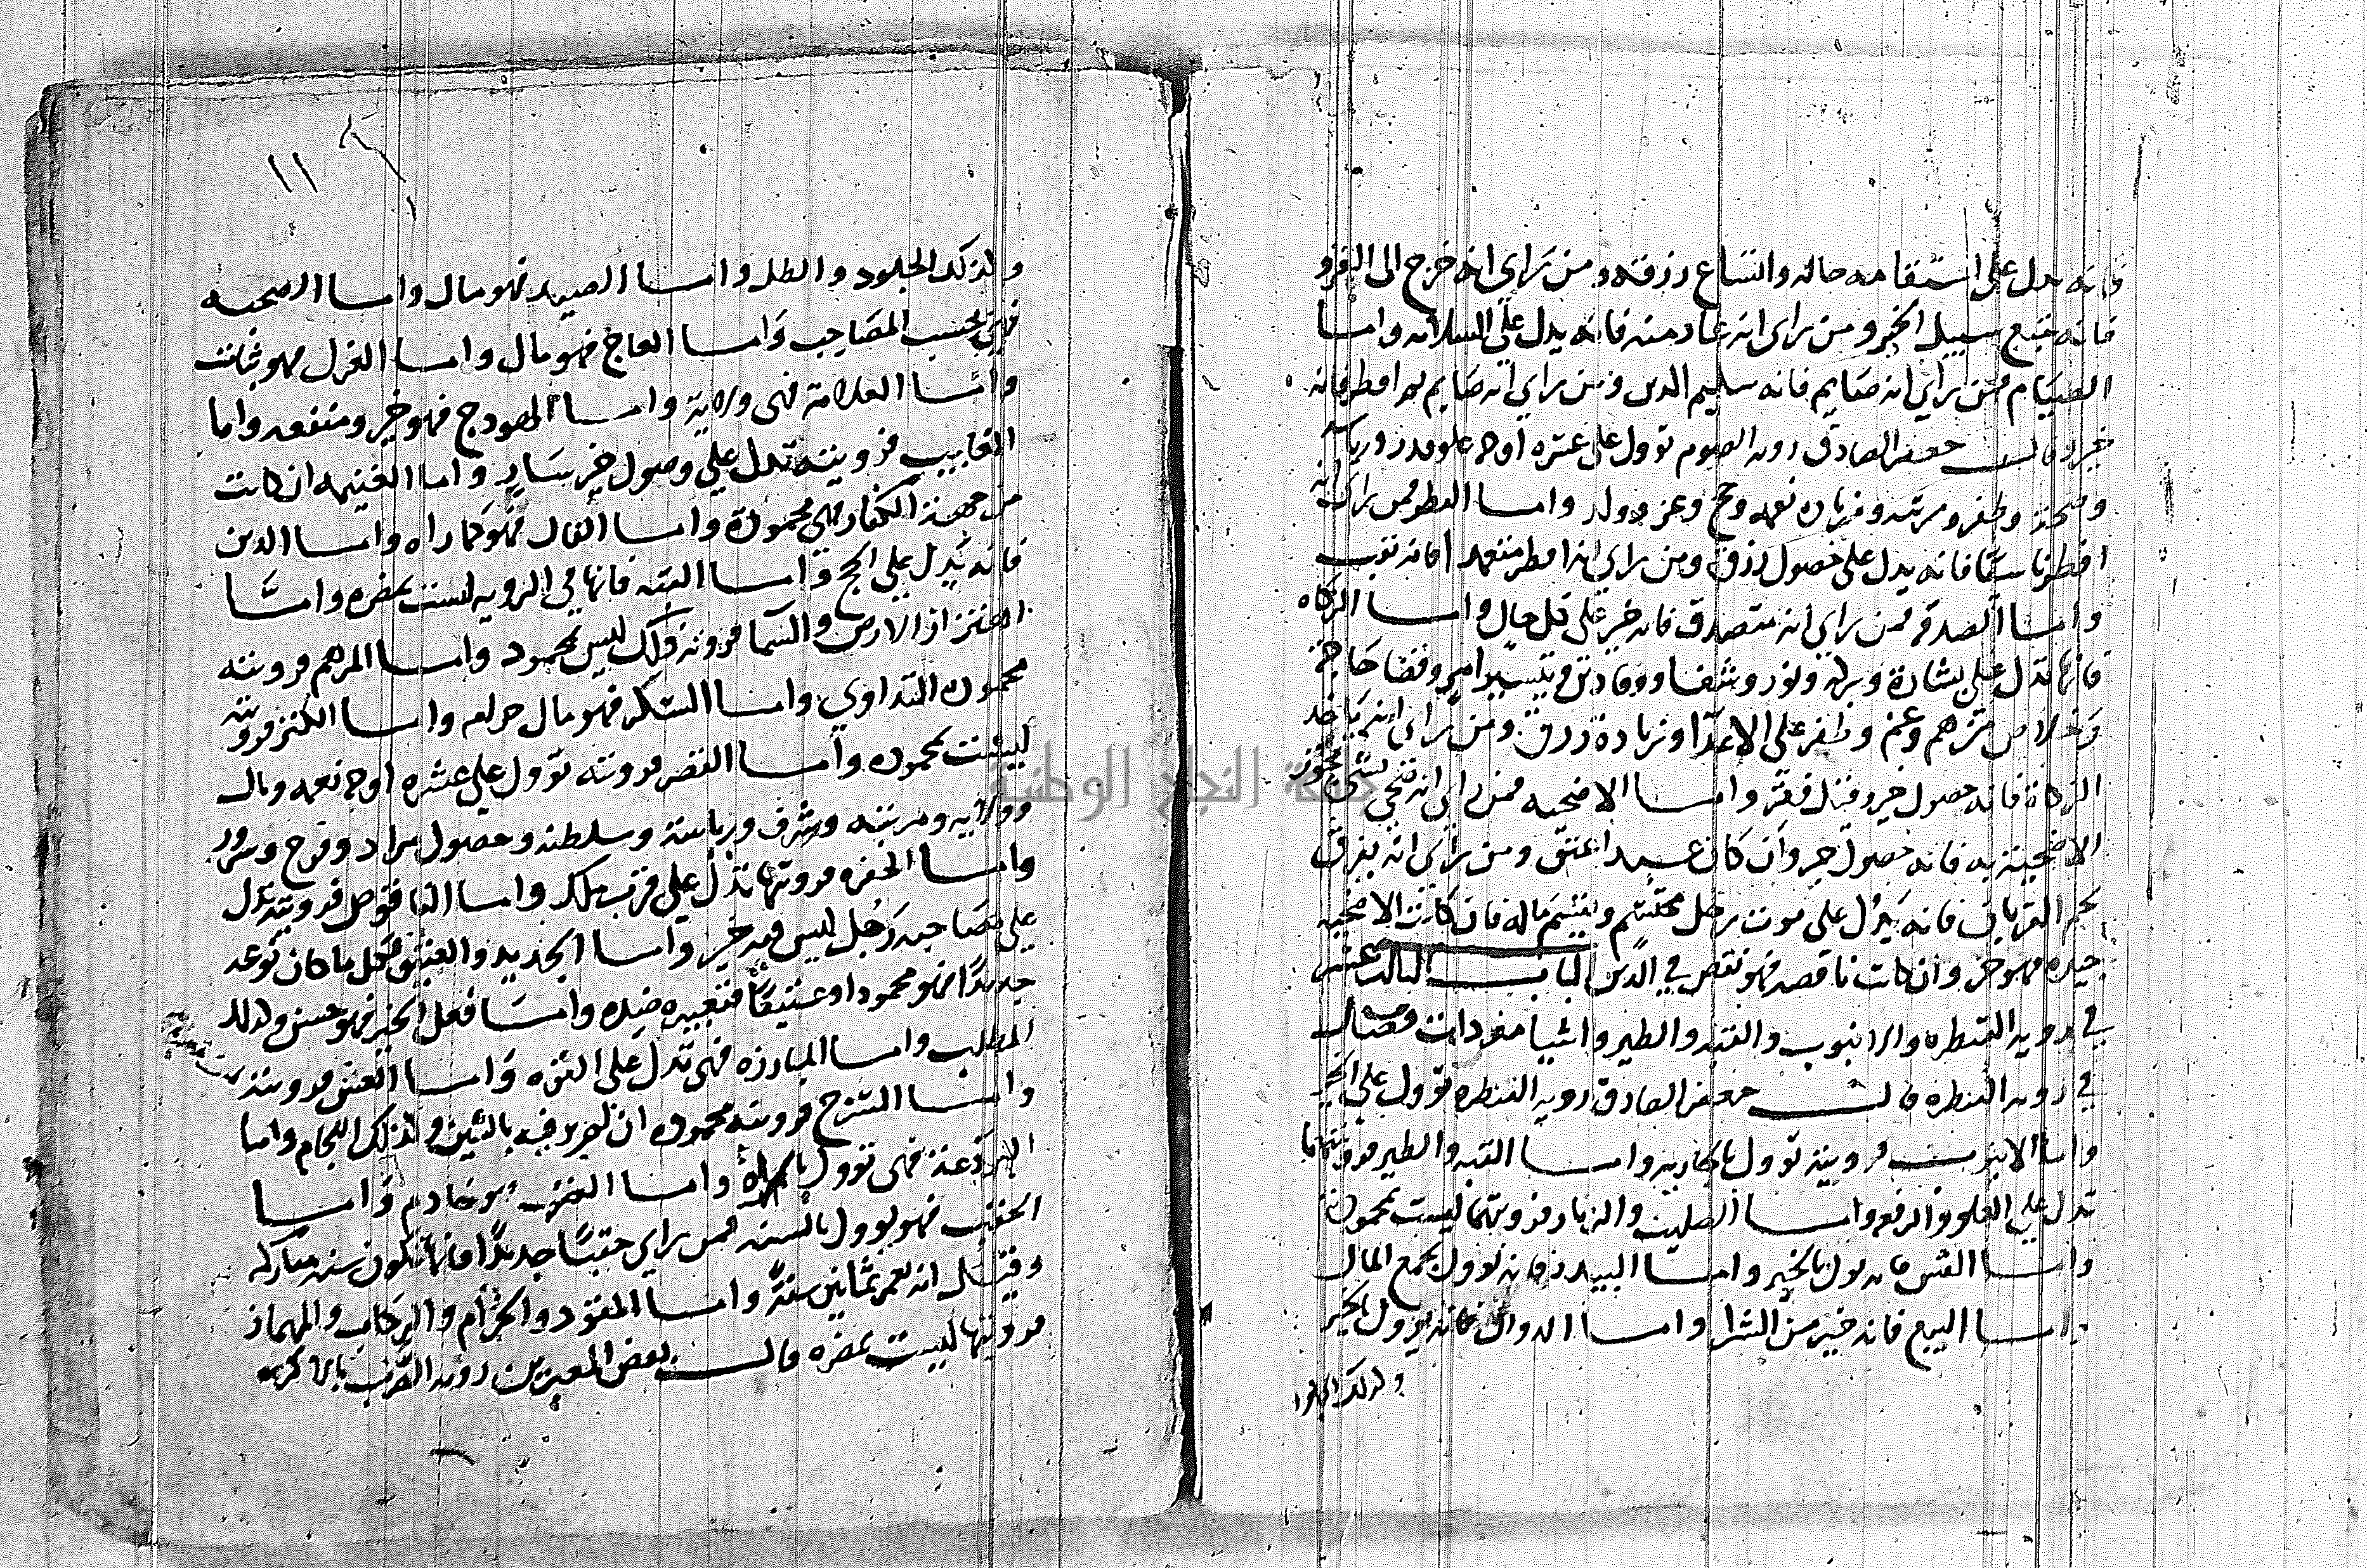 فانه يدل على استقامه حاله واتساع رزقه ومن راى انه خرج الى الغزو
فانه يتبع سبيل الخير ومن راى انه عاد منه فانه يدل على السلامه واما
الصيام فمن راى انه صايم فانه سليم الدين ومن راى انه صايم ثم افطر فانه
جعفر الصادق رويه الصوم تؤول على عشره اوجه علو قدر ورياسه
وصحة وظفر ومرتبه وزياده نعمه وحج وعز وولد واما الفطر فمن راى انه
افطر ناسيا فانه يدل على حصول رزق ومن راى انه افطر متعمدا فانه
واما الصدقه فمن راى انه متصدق فانه خير على كل حال واما الزكاه
فانها تدل على بشارة وبركه ونور وشفا وتيسير امر وقضا حاجة
وخلاص من هم وغم وظفر على الاعدا وزيادة رزق ومن راى انه ياخذ
الزكاة فانه حصول خير وقيل فقر واما الاضحيه فمن راى انه ضحى بشى يجوز
الاضحية به فانه حصول خير وان كان عبدا عتق ومن راى انه يفرق
لحم القربان فانه يدل على موت رجل محتشم ويقسم ماله فان كانت الاضحيه
جيده فهو خير وان كانت ناقصه فهو نقص في الدين الباب الثالث عشر
في رويه القنطره والانبوب والقبه والطير واشيا مفردات فصل
في رويه القنطره قال جعفر الصادق رويه القنطره تؤول على الخير
واما الانبوب فرويته تؤول بالجاريه واما القبه والطير فرويتهما
تدل على العلو والرفعه واما الصليب والزنار فرويتهما ليست بمحمودة
واما القش فانه يؤول بالخير واما البيدر فانه يؤول بجمع المال
واما البيع فانه خير من الشرا واما الدواة فانه يؤول بالخير
وكذلك الجلود
١١
وكذلك الجلود والطل واما الصيد فهو مال واما الصحبه
فهي بحسب المصاحب واما العاج فهو مال واما الغزل فهو ثابت
واما العلامة فهى ولاية واما الهودج فهو خير ومنفعه واما
الغايب فرويته تدل على وصول خير سار واما الغنيمه ان كانت
من جهة الكفار فهى محمودة واما الفال فهو كما راه واما الدين
فانه يدل على الحج واما التيه فانها في الرويه ليست بمضره واما
اهتزاز الارض والسما فرويه ذلك ليس بمحمود واما المرهم فرويته
محموده التداوي واما السكر فهو مال حرام واما الكنز فرويته
ليست بمحموده واما القصر فرويته تؤول على عشره اوجه نعمه ومال
وولايه ومرتبه وشرف ورياسة وسلطنه وحصول مراد وفرح وسرور
واما الحفره فرويتها تدل على قرب ملك واما الناقوص فرويته تدل
على مصاحبه رجل ليس فيه خير واما الجديد والعتيق فكل ما كان نوعه
جديدا فهو محمود او عتيقا فتعبيره ضده واما فعل الخير فهو حسن وكذلك
المطلب واما المبارزه فهى تدل على الشره واما العش فرويته
واما السرج فرويته محموده ان لم يرفيه ما يشين وكذلك اللجام واما
البردعة فهى تؤول بامراة واما فهو خادم واما
الحقب فهو يوول بالسنه فمن راى حقبا جديدا فانها تكون سنه مباركه
وقيل انه يعمر ثمانين سنة واما المقود والحزام والركاب والمهماز
فرويتها ليست بمضره قال بعض المعبرين رويه